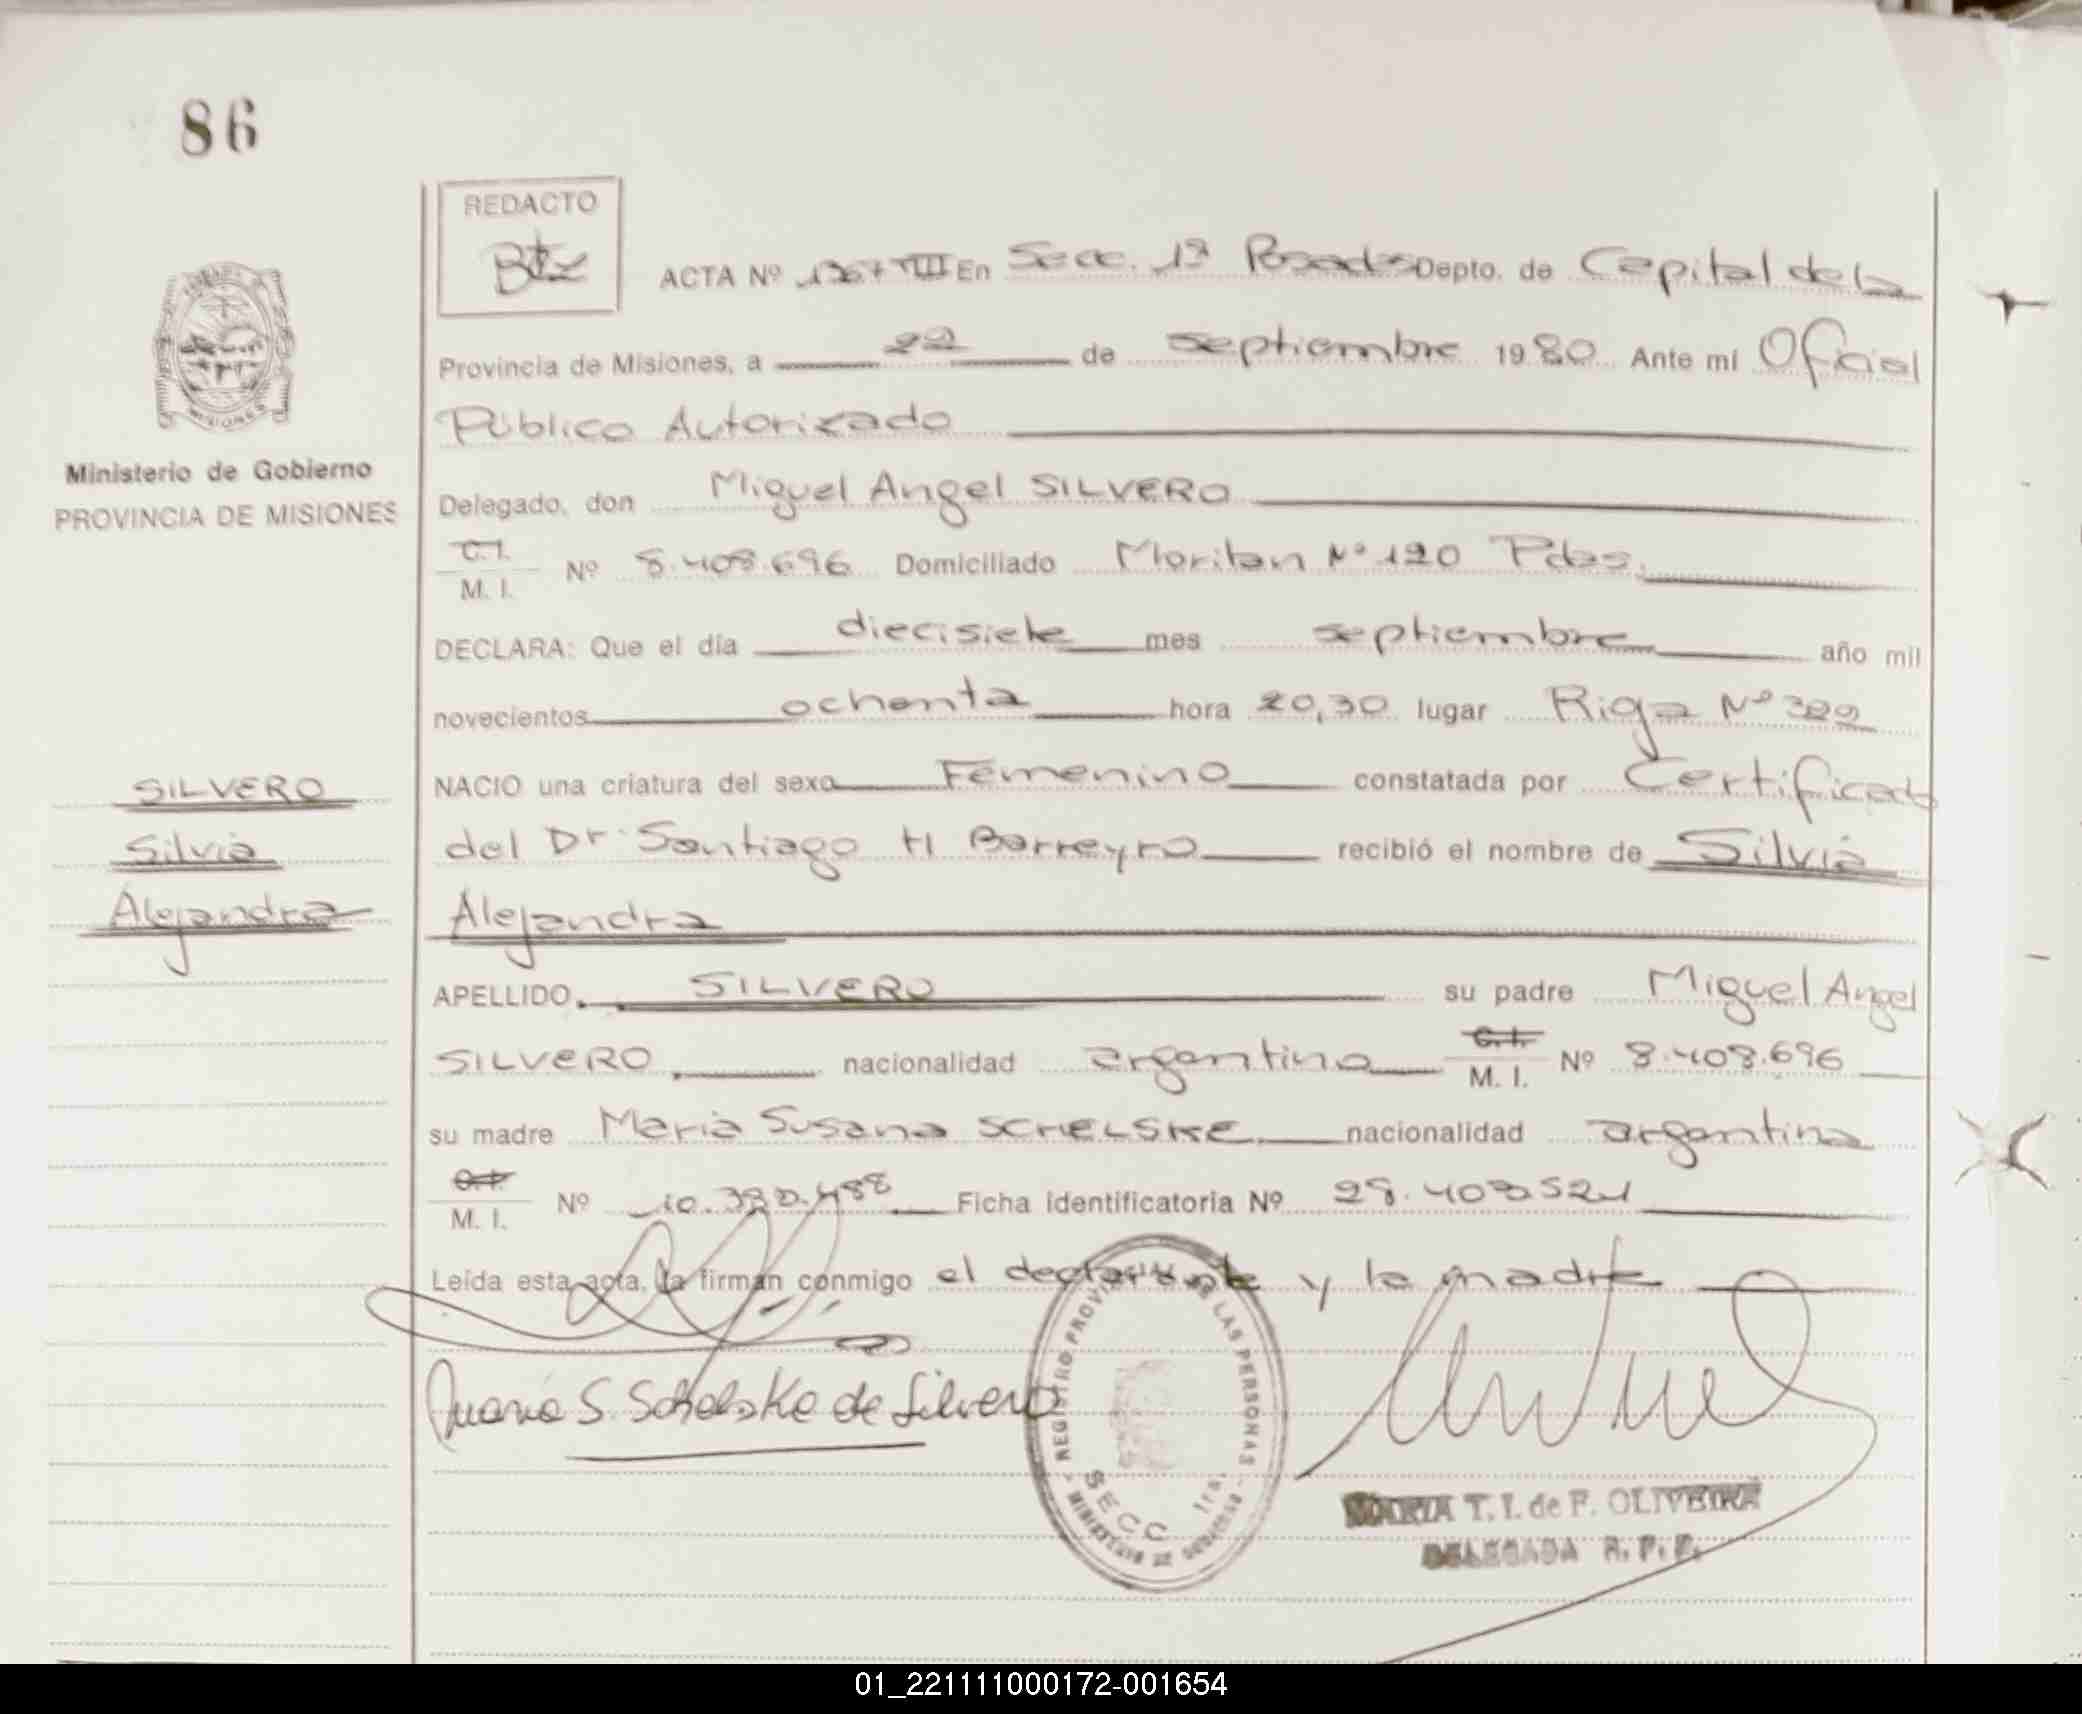 86
REDACTO
ACTA Nº En Secc. 1ª Posadas Depto. de Capital de la
Provincia de Misiones, a 22 de septiembre 1980 Ante mí Oficial
Público Autorizado
Ministerio de Gobierno
PROVINCIA DE MISIONES
MISIONES
Delegado, don Miguel Angel SILVERO
C.I. / M. I. Nº 8.408.696 Domiciliado Moritan Nº 120 Pdas.
DECLARA: Que el día diecisiete mes septiembre año mil
novecientos ochenta hora 20,30 lugar Riga Nº
SILVERO
Silvia
Alejandra
NACIO una criatura del sexo Femenino constatada por Certificado
del Dr. Santiago H Barreyro recibió el nombre de Silvia
Alejandra
APELLIDO SILVERO su padre Miguel Angel
SILVERO nacionalidad argentino C.I. / M. I. Nº 8.408.696
su madre Maria Susana SCHELSKE nacionalidad argentina
C.I. / M. I. Nº Ficha identificatoria Nº
Leída esta acta, la firman conmigo el declarante y la madre
Maria S. Schelske de Silvero
REGISTRO PROVINCIAL DE LAS PERSONAS
SECC 1ra.
MINISTERIO DE GOBIERNO
MARIA T. I. de F. OLIVEIRA
DELEGADA R. P. P.
01_221111000172-001654